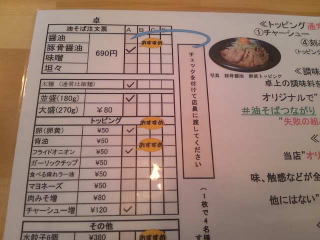 卓
油そば注文票 A B C D
醤油
豚骨醤油 690円
味噌
坦々
おすすめ
並盛(180g)
大盛(270g) ¥80
トッピング
卵(卵黄) ¥50
背油 ¥50
フライドオニオン ¥50
ガーリックチップ ¥50
食べる辣れラー油 ¥50
マヨネーズ ¥50
肉みそ増 ¥80
チャーシュー増 ¥120
おすすめ
おすすめ
その他
水餃子6個 ¥380
チェックを付けて店員に渡してください
(一枚で4名様
≪トッピング
①チャーシュー
④刻み
写真 豚骨醤油 野菜トッピング
≪調味
卓上の調味料を
オリジナルで"
#油そばつながり
"失敗の組
≪当
当店"オリ
味、触感などが全
他にはない"